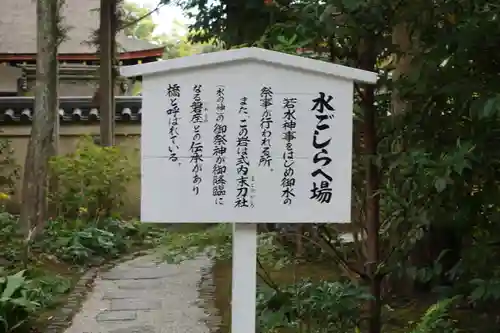 水ごしらへ場
若水神事をはじめ御水の
祭事が行われる所。
また、この岩は式内末刀社
(水の神)の御祭神が御降臨
なる磐座との伝承があり
橋と呼ばれている。